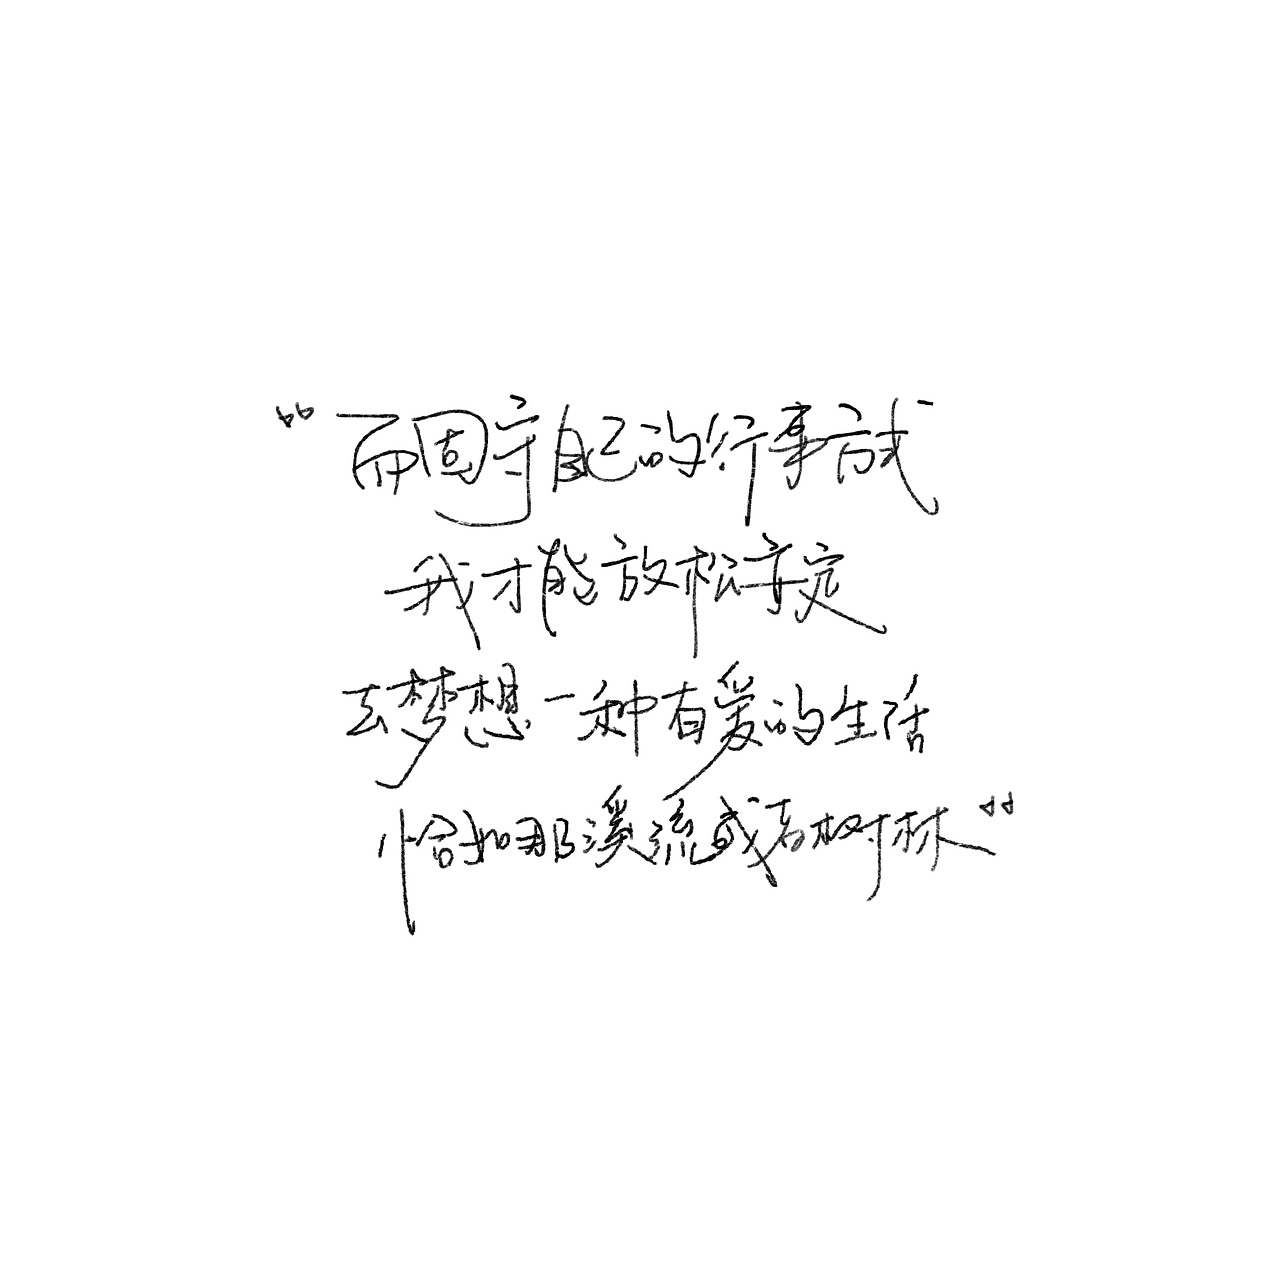 “而固守自己的行事方式
我才能放松安定
去梦想一种有爱的生活
恰如那溪流或者树林”